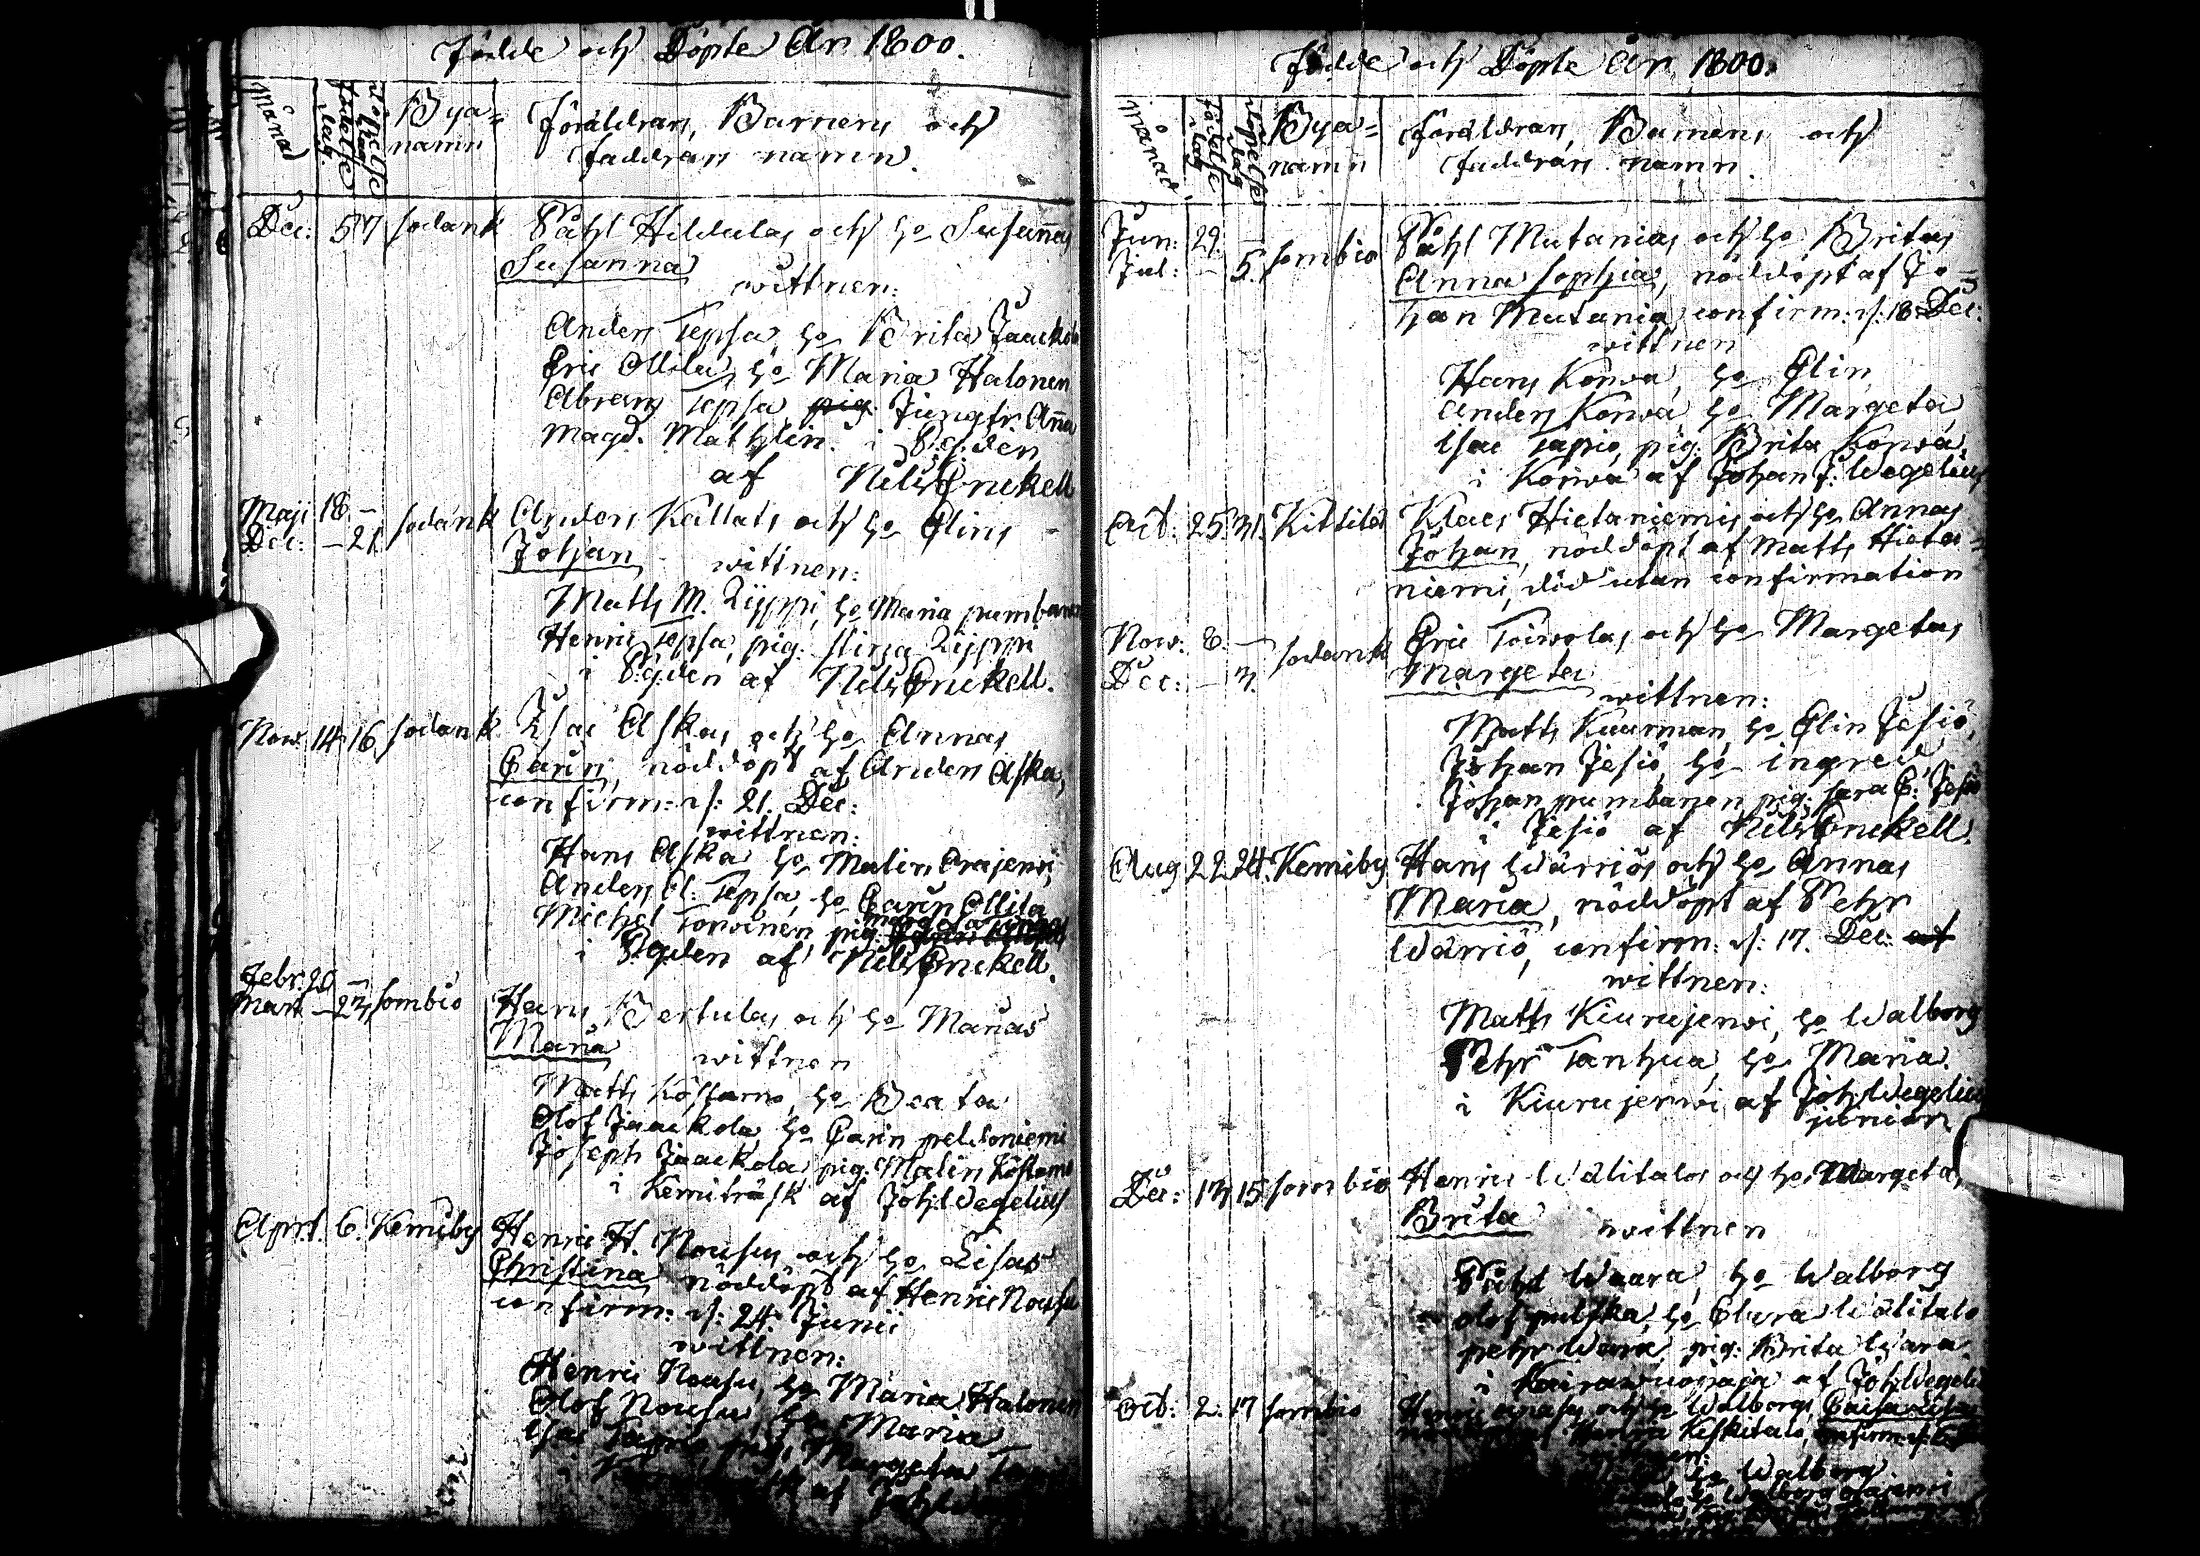 Födde och Döpte År 1800.
Månad
Födelse dag
Döpelse dag
Bya=
namn
Föräldrars, Barnens och
Faddrars namn.
Dec: 5 7 Sodank Påhl Hildulas och ho Susannas
Susanna
wittnen:
Anders Tepsa, ho Brita Jaackola
Eric Ollila, ho Maria Halonen
Abram Tepsa, pig. Jungfr. Anna
Magd. Mathlin. i S:g:den
af Nils Enckell
Maji 18. -
Dec: - 21. Sodank Anders Kallats och ho Elins
Johan wittnen:
Matts M. Zyppi, ho Maria pumbanen
Henric Tepsa, pig. Zyppi
i S:g:den af Nils Enckell.
Now. 14 16 Sodank. Isac Askas och ho Annas
Carin, nöddöpt af Anders Aska,
confirm: d: 21. Dec:
wittnen:
Hans Aska ho Malin Orajerwi,
Anders A. Tepsa, ho Carin Ollila
Michel Torvinen pig.
i S:g:den af Nils Enckell.
Febr. 20 -
Mart. - 23, Sombio Hans Bertulas och ho Marias
Maria
wittnen
Matts Köstamo, ho Beata
Olof Jaackola, ho Carin peldoniemi
Joseph Jaackola, pig. Malin Köstamo
i Kemiträsk af Joh. Wegelius
Aprl. 6. Kemiby Henric H. Nousus och ho Lisas
Christina nöddöpt af Henric Nousu
confirm: d: 24. Junii
wittnen:
Henric Nousu, ho Maria Halonen
Olof Nousu, ho Maria
Isac Tapio, pig. Margeta
af Joh. We
Födde och Döpte År 1800.
Månad.
Födelse dag
Döpelse dag
Bya=
namn
Föräldrars, Barnens och
Faddrars namn.
Jun: 29. -
Jul: - 5. Sombio Påhl Mutanias och ho Britas
Anna Sophia, nöddöpt af Jo-
han Mutania, confirm: d: 18 Dec:
wittnen
Hans Korwa, ho Elin
Anders Korwa ho Margeta
Isac Tapio, pig. Brita Korwa
i Korwa af Johan J. Wegelius
Oct: 25. 31. Kittilä Klaes Hietaniemis och ho Annas
Johan, nöddöpt af Matts Hieta=
niemi, död utan confirmation
Now: 8. -
Dec: - 3. Sodank Eric Toiwolas och ho Margetas
Margeta
wittnen:
Matts Kuurman, ho Elin Jesiö,
Johan Jesiö, ho ingred
Johan pumbanen pig. Sara C: Jesiö
i Jesiö af Nils Enckell.
Aug 22 24. Kemiby Hans Wärriös och ho Annas
Maria, nöddöpt af Pehr
Wärriö, confirm: d: 17. Dec: af
wittnen:
Matts Kiurujerwi, ho Walborg
Pehr Tanhua, ho Maria.
i Kiurujerwi af Joh. Wegelius
junior
Dec: 13 15 Sombio Henric Wälitalos och ho Margeta,
Brita wittnen
Påhl Waara, ho Walborg
Olof pulska, ho Clara Wälitalo
petr Wara pig: Brita Wara
i Kairawuopaja af Joh. Wegeli
Oct: 2. 17 Sombio Henric och ho Walborgs Caisa Lisa
Keskitalo, confirm: d:
wittnen:
ho Walborg
ho Walborg